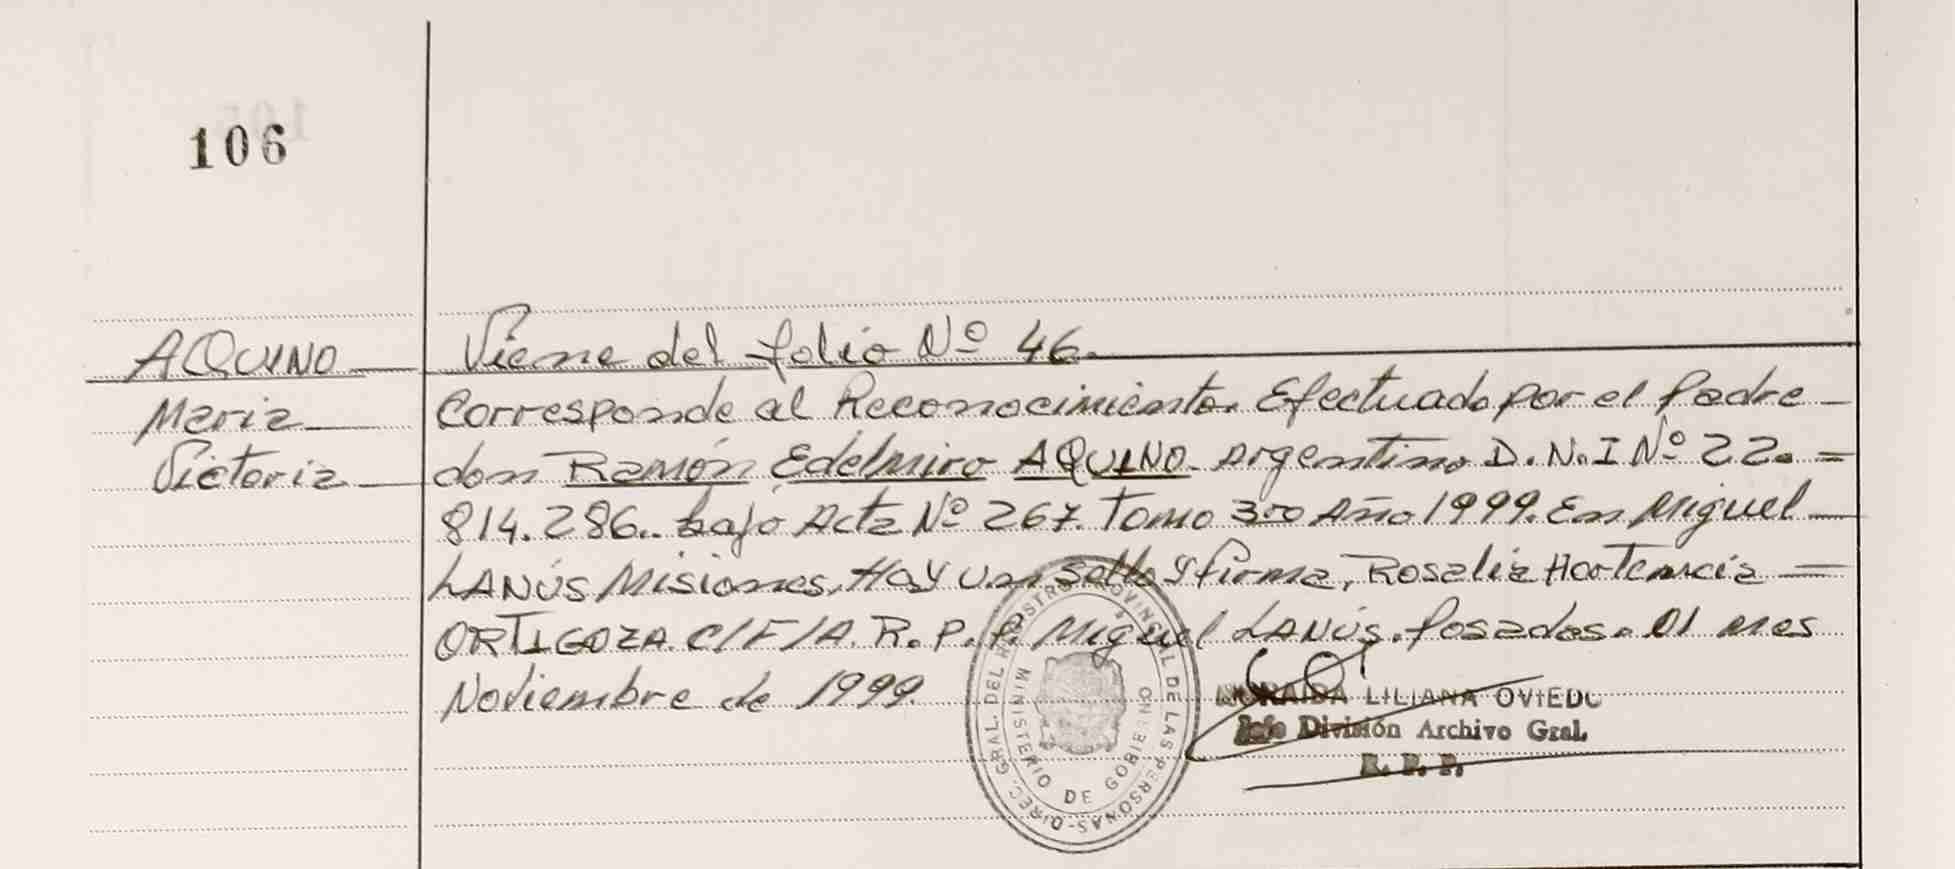 106
AQUINO
Maria
Victoria
Viene del folio Nº 46.
Corresponde al Reconocimiento. Efectuado por el Padre —
don Ramón Edelmiro AQUINO. Argentino D.N.I Nº 22. =
814.286.. bajo Acta Nº 267. Tomo 3ro Año 1999. En Miguel —
LANÚS Misiones, Hay un sello y firma, Rosalia Hortencia —
ORTIGOZA. C/F/A. R.P.P. Miguel LANÚS. Posadas. 01 mes
Noviembre de 1999.
DIREC. GRAL. DEL REGISTRO PROVINCIAL DE LAS PERSONAS-
MINISTERIO DE GOBIERNO
LILIANA OVIEDO
Jefe División Archivo Gral.
R. P. P.